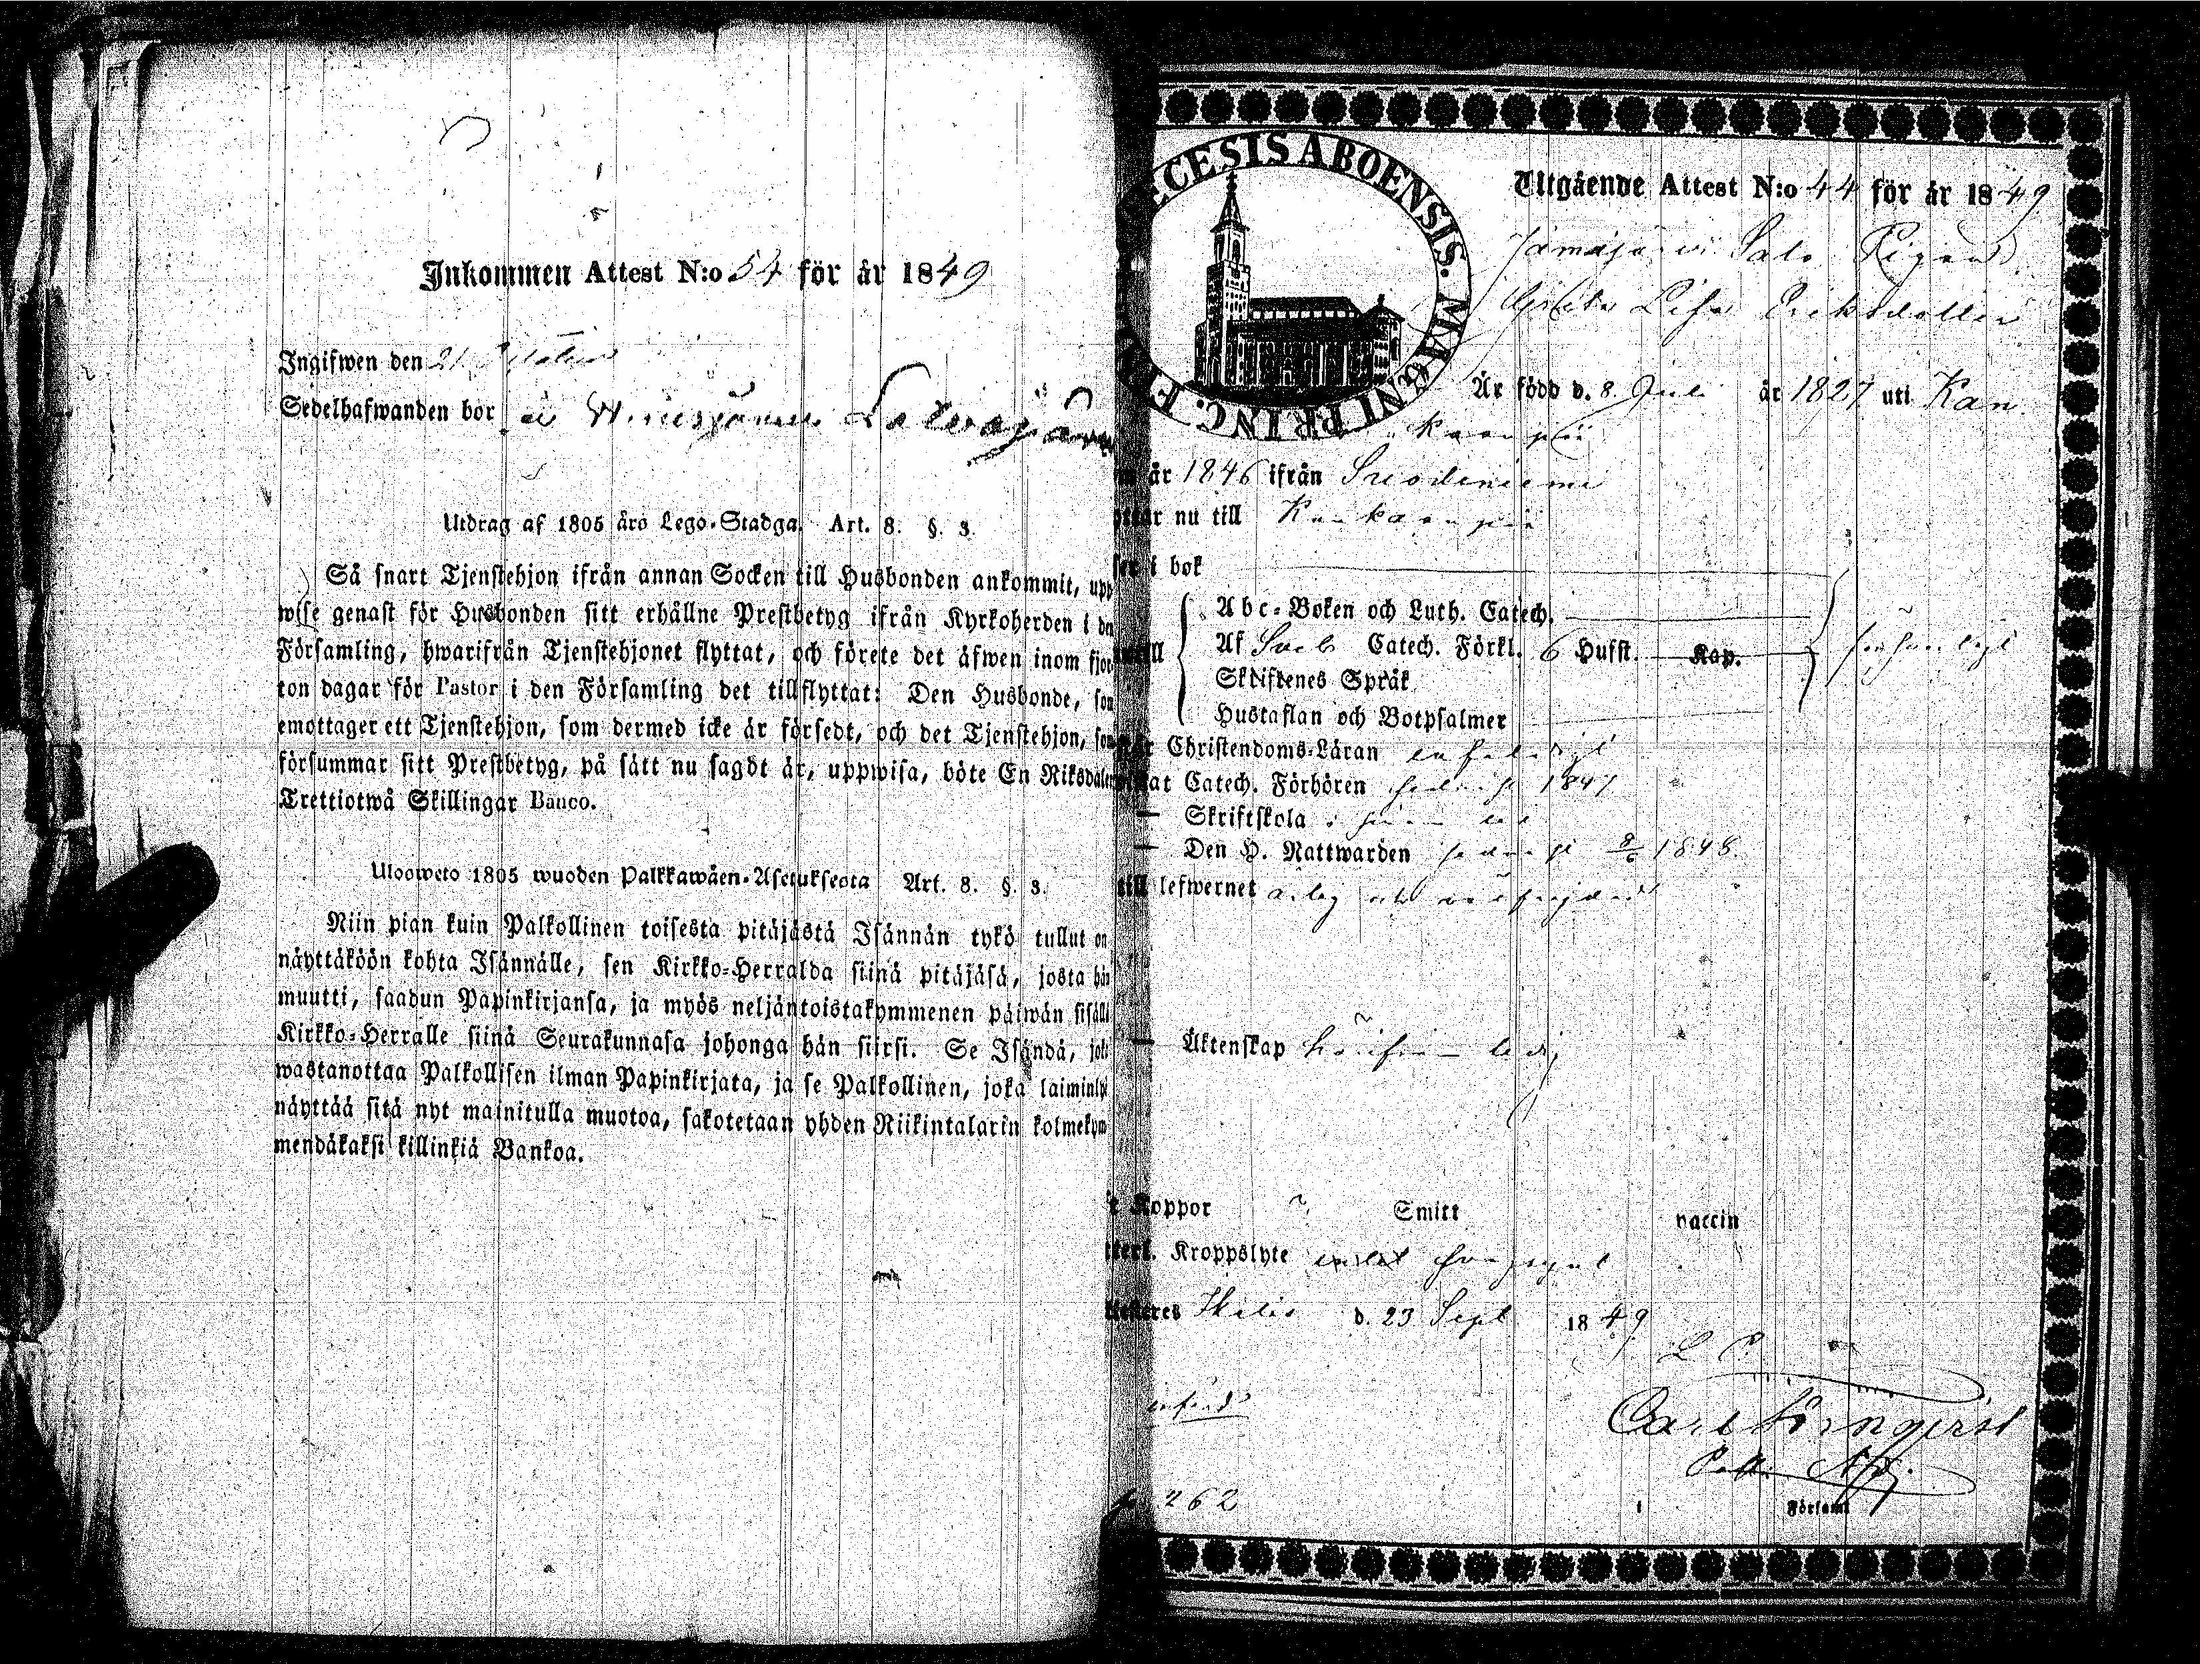 Inkommen Attest N:o 54 för år 1849
Ingifwen den 21
Sedelhafwanden bor
Utdrag af 1805 års Lego-Stadga. Art. 8. §. 3.
Så snart Tjenstehjon ifrån annan Socken till Husbonden ankommit, upp
wise genast för Husbonden sitt erhållne Prestbetyg ifrån Kyrkoherden i den
Församling, hwarifrån Tjenstehjonet flyttat, och förete det äfwen inom fjor
ton dagar för Pastor i den Församling det tillflyttat: Den Husbonde, som
emottager ett Tjenstehjon, som dermed icke är försedt, och det Tjenstehjon, som
försummar sitt Prestbetyg, på sätt nu sagdt är, uppwisa, böte En Riksdaler
Trettiotwå Skillingar Banco.
Ulosweto 1805 wuoden Palkkawäen-Asetuksesta Art. 8. §. 3.
Niin pian kuin Palkollinen toisesta pitäjästä Isännän tykö tullut on
näyttäköön kohta Isännälle, sen Kirkko-Herralda siinä pitäjäsä, josta hän
muutti, saadun Papinkirjansa, ja myös neljäntoistakymmenen päiwän sisällä
Kirkko-Herralle siinä Seurakunnasa johonga hän siirsi. Se Isändä, joka
wastanottaa Palkollisen ilman Papinkirjata, ja se Palkollinen, joka laiminlyö
näyttää sitä nyt mainitulla muotoa, sakotetaan yhden Riikintalarin kolmekym
mendäkaksi killinkiä Bankoa.
ECESIS ABOENSIS. MAGNI PRINC. F
Utgående Attest N:o 44 för år 1849
Jämijärvi Salo Pigan
Greta Lisa Eriksdotter
Är född d. 8 Juli år 1827 uti Kan
kaanpää
år 1846 ifrån Suodeniemi
ar nu till Kankaanpää
i bok
Abc-Boken och Luth. Catech.
Af Sveb Catech. Förkl. 6 Hufst. Kap.
Skriftenes Språk
Hustaflan och Botpsalmer
Christendoms-Läran
at Catech. Förhören 1847
— Skriftskola
— Den H. Nattwarden 1848.
till lefwernet ärlig och
— Äktenskap ledig
Koppor Smitt vaccin
Kroppslyte
Ikalis d. 23 Sept 1849
L P.
Carl
262
i Församl